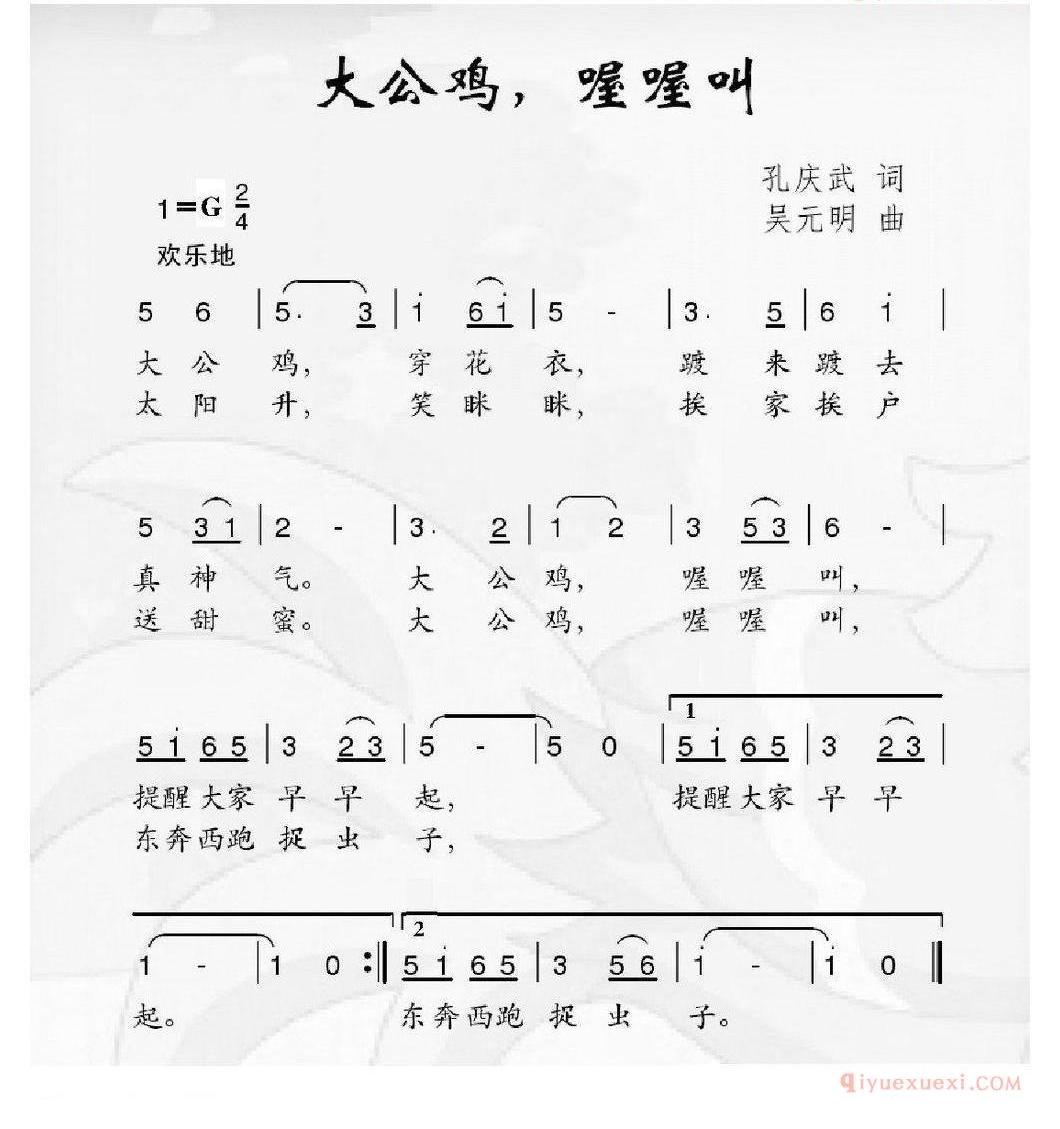 大公鸡，喔喔叫
孔庆武 词
1=G 2/4
吴元明 曲
欢乐地
5 6 | 5. 3 | i 6 i | 5 - | 3. 5 | 6 i |
大 公 鸡， 穿 花 衣， 踱 来 踱 去
太 阳 升， 笑 眯 眯， 挨 家 挨 户
5 3 1 | 2 - | 3. 2 | 1 2 | 3 5 3 | 6 - |
真 神 气。 大 公 鸡， 喔 喔 叫，
送 甜 蜜。 大 公 鸡， 喔 喔 叫，
1
5 i 6 5 | 3 2 3 | 5 - | 5 0 | 5 i 6 5 | 3 2 3 |
提醒大家 早 早 起， 提醒大家 早 早
东奔西跑 捉 虫 子，
2
1 - | 1 0 :‖ 5 i 6 5 | 3 5 6 | i - | i 0 ‖
起。 东奔西跑 捉 虫 子。
qiyuexuexi.COM